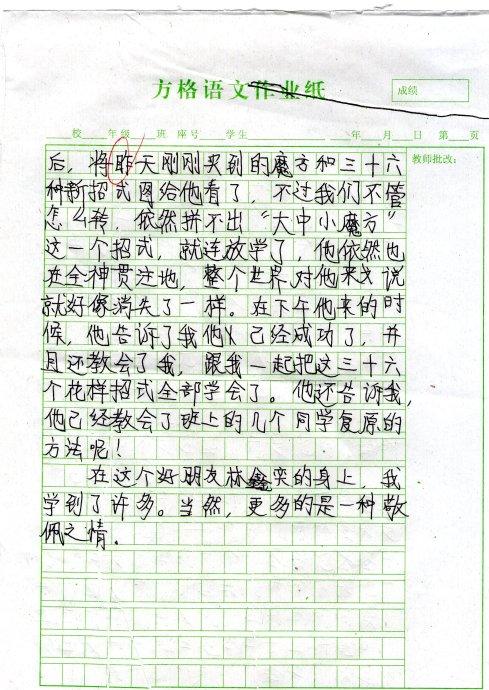 方格语文作业纸
成绩
校 年级 班 座号 学生 年 月 日 第 页
教师批改：
后，将昨天刚刚买到的魔方和三十六
种新招式图给他看了，不过我们不管
怎么转，依然拼不出“大中小魔方”
这一个招式，就连放学了，他依然也
在全神贯注地，整个世界对他来说
就好像消失了一样。在下午他来的时
候，他告诉了我他已经成功了，并
且还教会了我，跟我一起把这三十六
个花样招式全部学会了。他还告诉我，
他已经教会了班上的几个同学复原的
方法呢！
在这个好朋友林鑫奕的身上，我
学到了许多。当然，更多的是一种敬
佩之情．